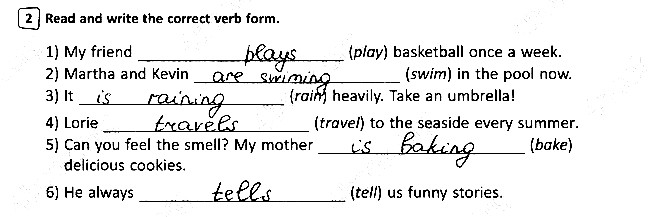 2 Read and write the correct verb form.
1) My friend plays (play) basketball once a week.
2) Martha and Kevin are swiming (swim) in the pool now.
3) It is raining (rain) heavily. Take an umbrella!
4) Lorie travels (travel) to the seaside every summer.
5) Can you feel the smell? My mother is baking (bake)
delicious cookies.
6) He always tells (tell) us funny stories.